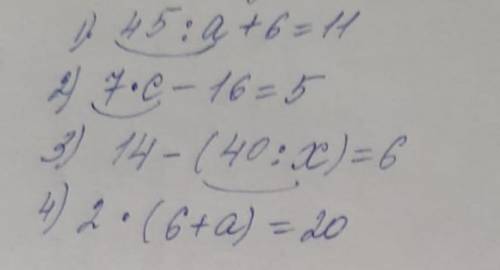 1) 45:a+6=11
2) 7·c-16=5
3) 14-(40:x)=6
4) 2·(6+a)=20